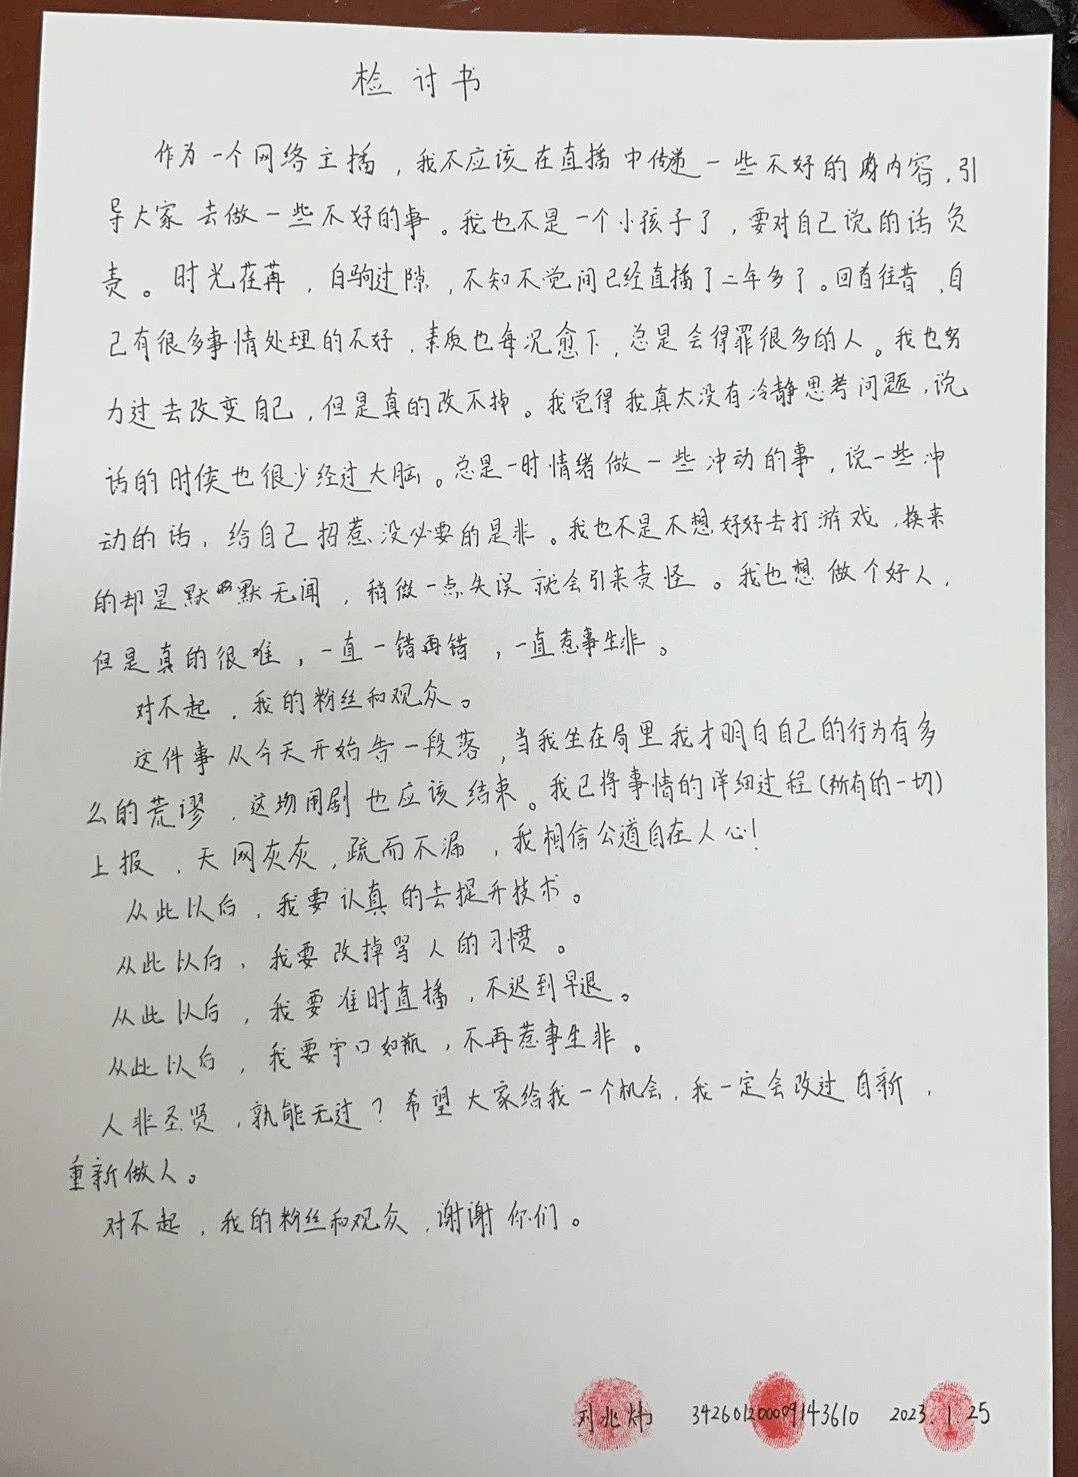 检讨书
作为一个网络主播，我不应该在直播中传递一些不好的内容，引
导大家去做一些不好的事。我也不是一个小孩子了，要对自己说的话负
责。时光荏苒，白驹过隙，不知不觉间已经直播了二年多了。回首往昔，自
己有很多事情处理的不好，素质也每况愈下，总是会得罪很多的人。我也努
力过去改变自己，但是真的改不掉。我觉得我真太没有冷静思考问题，说
话的时候也很少经过大脑。总是一时情绪做一些冲动的事，说一些冲
动的话，给自己招惹没必要的是非。我也不是不想好好去打游戏，换来
的却是默默无闻，稍微一点失误就会引来责怪。我也想做个好人，
但是真的很难，一直一错再错，一直惹事生非。
对不起，我的粉丝和观众。
这件事从今天开始告一段落，当我坐在局里我才明白自己的行为有多
么的荒谬，这场闹剧也应该结束。我已将事情的详细过程（所有的一切）
上报，天网灰灰，疏而不漏，我相信公道自在人心！
从此以后，我要认真的去提升技术。
从此以后，我要改掉骂人的习惯。
从此以后，我要准时直播，不迟到早退。
从此以后，我要守口如瓶，不再惹事生非。
人非圣贤，孰能无过？希望大家给我一个机会，我一定会改过自新，
重新做人。
对不起，我的粉丝和观众，谢谢你们。
刘兆炜 342601200009143610 2023.1.25